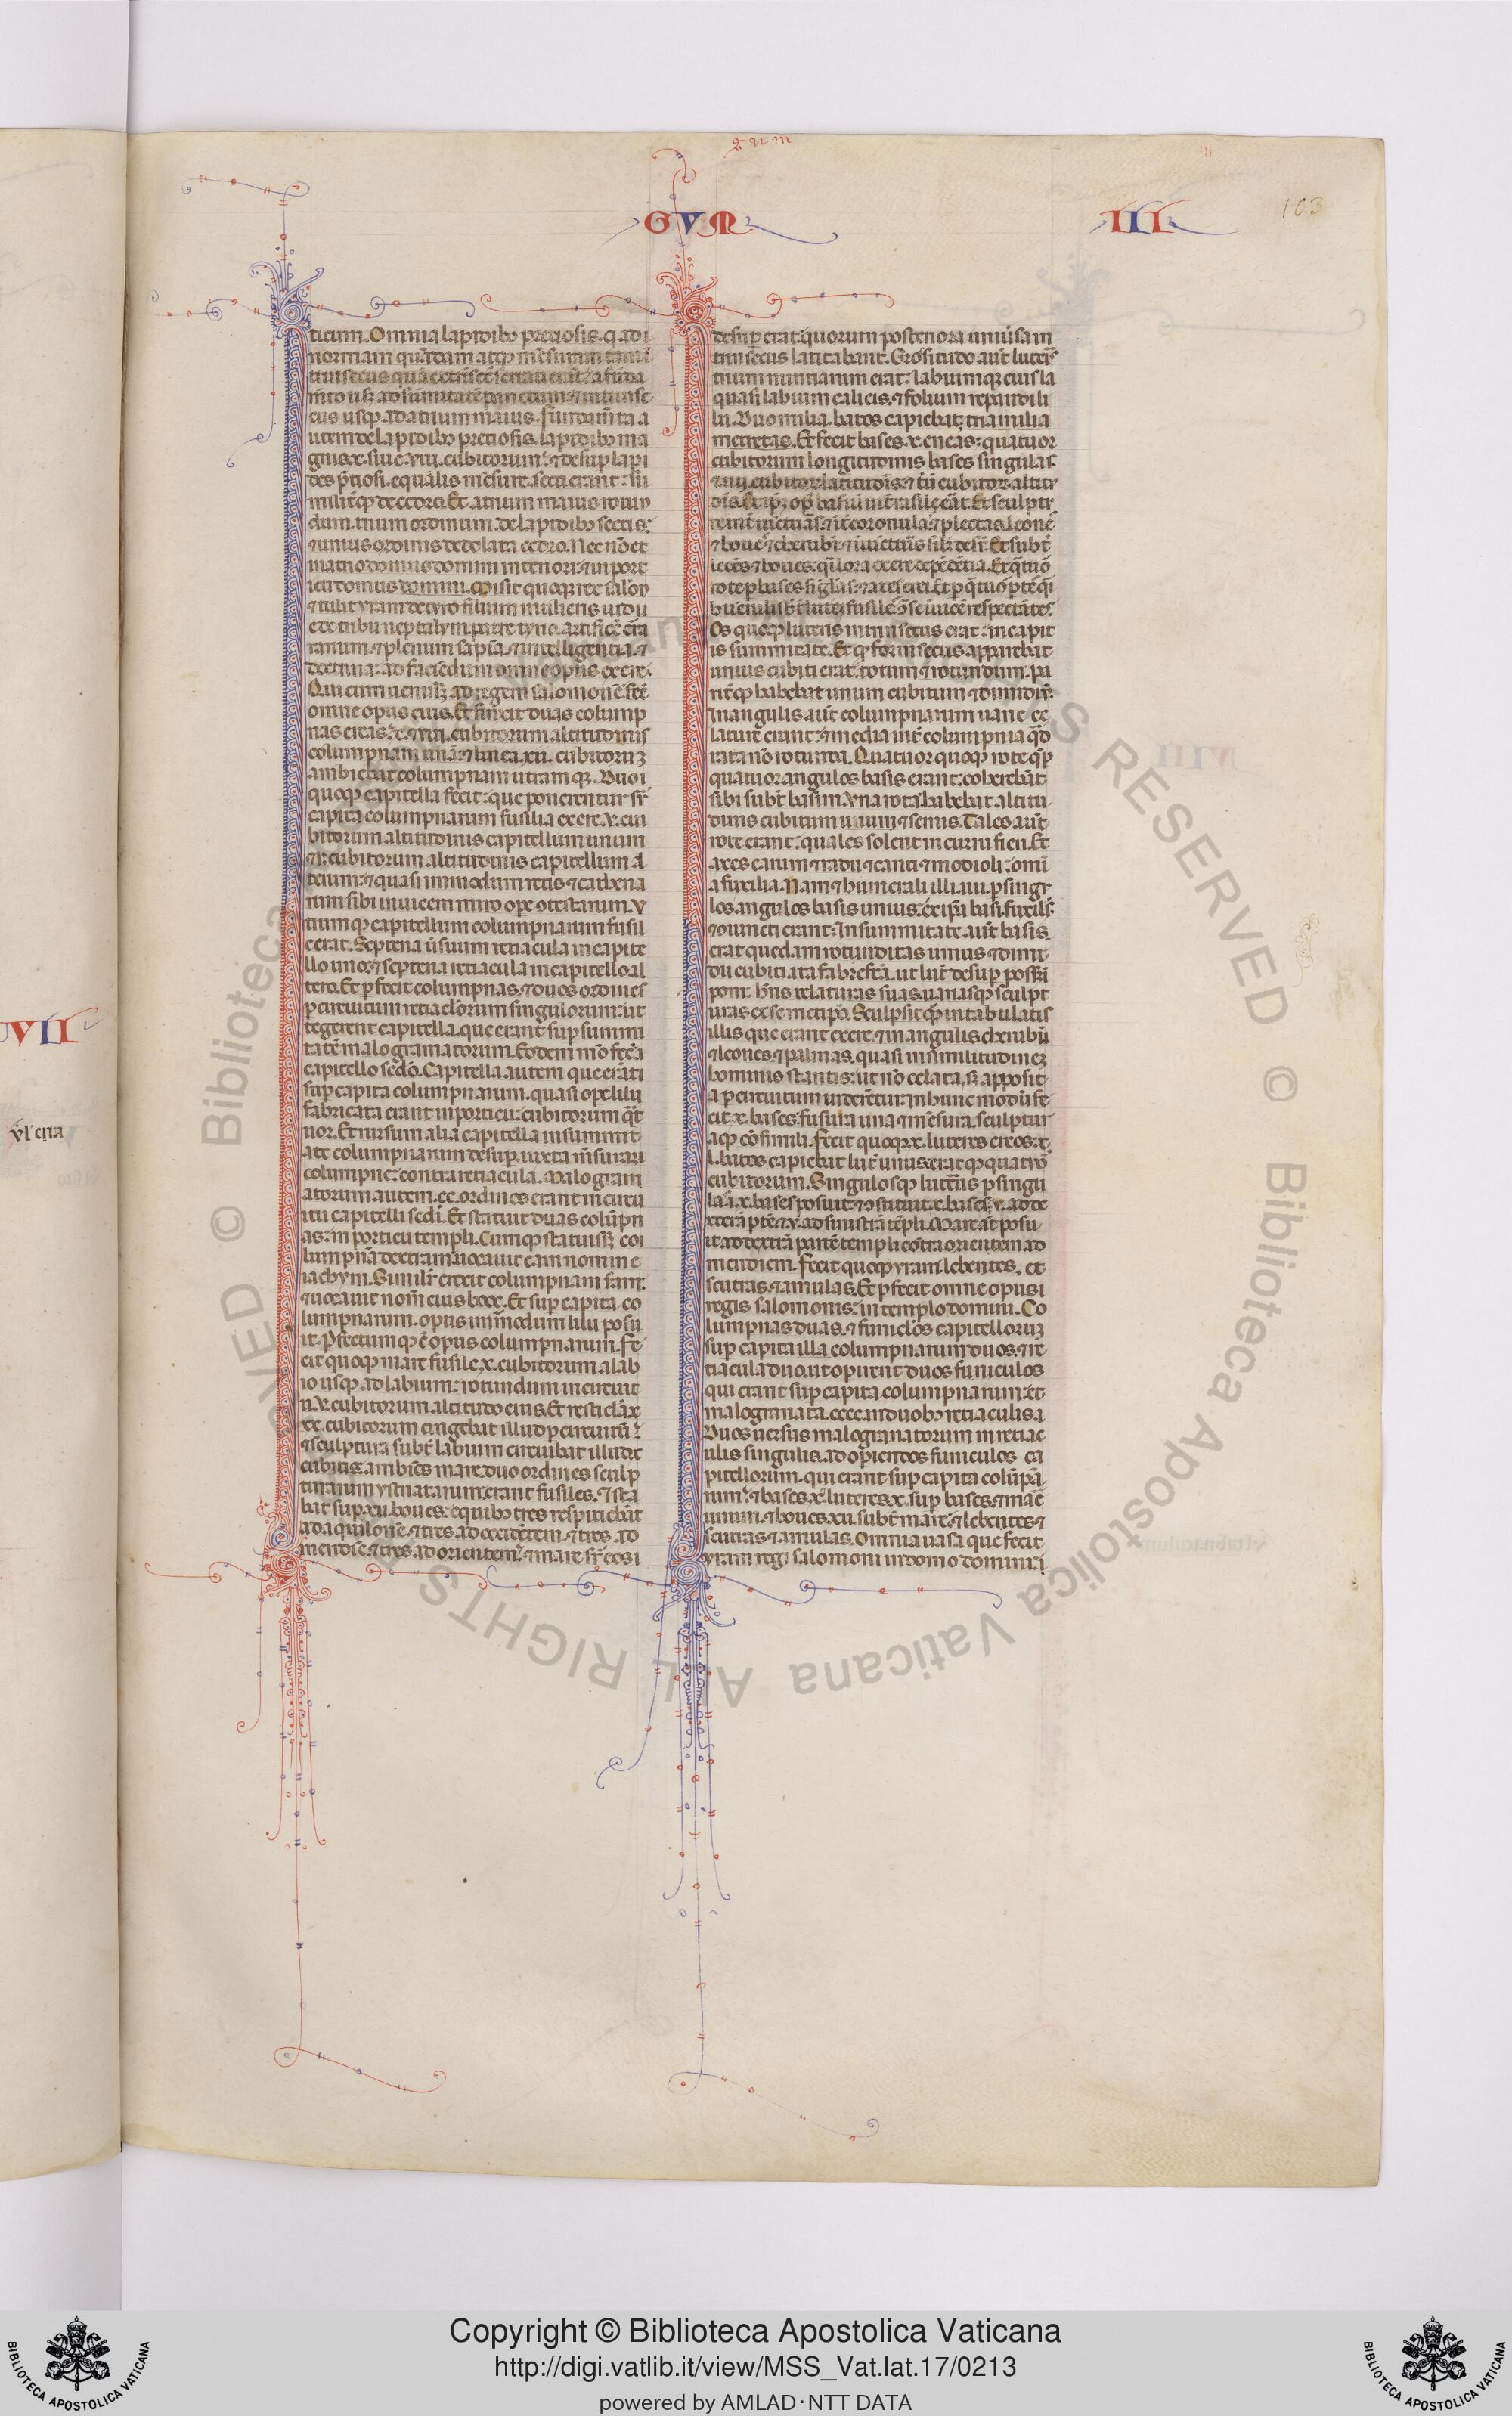 GUM
III
103
ticum. Omnia lapidibꝫ preciosis. q̇ ad i
normam quādam atqꝫ mēsuram tam ī
trinsecus quā extrīsecꝰ serrati erāt: a fūda
mēto usqꝫ ad sūmitatē parietum: ⁊ intrīse
cus usqꝫ ad atrium maius. Fundamēta a
utem de lapidibꝫ preciosis. lapidibꝫ ma
gnis .x. siue .viii. cubitorum: ⁊ desuꝑ lapi
des p̄ciosi. equalis mēsure. secti erant: si
militerqꝫ de cedro. Et atrium maius rotun
dum. trium ordinum. de lapidibꝫ sectis:
⁊ unius ordinis dedolata cedro. Nec nō et
in atrio domus domini interiori: ⁊ in port
icu domus domini. Misit quoqꝫ rex salōn
⁊ tulit yram de tyro filium mulieris uidu
e de tribu neptalym. patre tyrio. artificē era
rarium. ⁊ plenum sapīa. ⁊ intelligentia. ⁊
doctrina: ad faciēdum omne opus ex ere.
Qui cum uenissꝫ ad regem salomonē. fec̄
omne opus eius. Et finxit duas colump
nas ereas: x. ⁊ viii. cubitorum altitudinis
columpnam unā: ⁊ linea .xii. cubitoruꝫ
ambiebat columpnam utramqꝫ. Duo
quoqꝫ capitella fecit: que ponerentur sr̄
capita columpnarum fusilia ex ere. v. cu
bitorum altitudinis capitellum unum
⁊ v. cubitorum altitudinis capitellum al
terum: ⁊ quasi in modum retis ⁊ cathena
rum sibi inuicem miro oꝑe ꝯtextarum. V
trumqꝫ capitellum columpnarum fusil
e erat. Septena ūsuum retiacula in capite
llo uno: ⁊ septena retiacula in capitello al
tero. Et ꝑfecit columpnas. ⁊ duos ordines
ꝑ circuitum retiaclorum singulorum: ut
tegerent capitella. que erant suꝑ summi
tatē malogranatorum. Eodem mō fecit ⁊
capitello sedo. Capitella autem que erāt
suꝑ capita columpnarum. quasi oꝑe lilii
fabricata erant in porticu: cubitorum q̄t
uor. Et rursum alia capitella in summit
ate columpnarum desuꝑ. iuxta mēsuram
columpne: contra retiacula. Malogran
atorum autem. cc. ordines erant in circu
itu capitelli sedi. Et statuit duas colūpn
as: in porticu templi. Cumqꝫ statuissꝫ co
lumpnā dextram: uocauit eam nomine
iachym. Similiī erexit columpnam sam:
⁊ uocauit nom̄ eius booz. Et suꝑ capita co
lumpnarum. opus in modum lilii posu
it. Ꝑfectumqꝫ ē opus columpnarum. Fe
cit quoqꝫ mare fusile. x. cubitorum a lab
io usqꝫ ad labium: rotundum in circuit
u. v. cubitorum altitudo eius. Et resticla x
xx. cubitorum cingebat illud ꝑ circuitū:
⁊ sculptura subt̄ labium circuibat illud x
cubitis: ambiēs mare. duo ordines sculp
turarum ystriatarum erant fusiles. ⁊ sta
bat suꝑ. xii. boues: e quibꝫ tres respiciebāt
ad aquilonē. ⁊ tres ad occidētem. ⁊ tres ad
meridiē. ⁊ tres ad orientem: ⁊ mare sr̄ eos
desuꝑ erat: quorum posteriora uniūsa in
trinsecus latitabant. Grossitudo aūt luter̄
trium unciarum erat: labiumqꝫ eius la
quasi labium calicis. ⁊ folium repandi li
lii. Duo milia. batos capiebat: tria milia
metretas. Et fecit bases .x. eneas: quatuor
cubitorum longitudinis bases singulas
⁊ iiii. cubitoꝝ latitudīs. ⁊ triū cubitoꝝ altitu
dīs. Et ipm̄ opꝰ basiū int̄rasile erat. Et sculptu
re int̄ iuncturas: ⁊ int̄ coronulas ⁊ plectas. leone
⁊ boues ⁊ cherubī. ⁊ ī iuncturis silr̄ desr̄. Et subt̄
leones ⁊ boues: q̄i lora ex ere depēdētia. Et q̄tuō
rote ꝑ bases singlas: ⁊ axes erei. Et ꝑ q̄tuō ꝑtes q̄i
humeruli subt̄ luterem fusiles ꝯ se īuicē respectātes.
Os quoqꝫ luteris intrinsecus erat: in capit
is summitate. Et qꝫ forinsecus. apparebat
unius cubiti erat. totum ⁊ rotundum. pa
riterqꝫ habebat unum cubitum ⁊ dimidiū.
In angulis aūt columpnarum uarie ce
lature erant: ⁊ media int̄ columpnia q̄d
rata nō rotunda. Quatuor quoqꝫ rote q̄ ꝑ
quatuor angulos basis erant: coherebāt
sibi subt̄ basim. Vna rota habebat altitu
dinis cubitum unum ⁊ semis. Tales aūt
rote erant: quales solent in curru fieri. Et
axes earum ⁊ radii ⁊ canti ⁊ modioli: omī
a fuxilia. Nam ⁊ humeruli illi .iiii. ꝑ singu
los angulos basis unius: ex ipā basi fuxiles
⁊ ꝯiuncti erant: In summitate aūt basis.
erat quedam rotunditas unius ⁊ dimi
dii cubiti. ita fabrefcā. ut luter desuꝑ possꝫ
poni: hn̄s celaturas suas. uariasqꝫ sculpt
uras ex semetipā. Sculpsit qꝫ in tabulatis
illis que erant ex ere. ⁊ in angulis cherubū
⁊ leones. ⁊ palmas. quasi in similitudineꝫ
hominis stantis: ut nō celata. sꝫ apposit
a ꝑ circuitum uiderētur. In hunc modū fe
cit .x. bases. fusura una ⁊ mēsura. sculptur
aqꝫ cōsimili. Fecit quoqꝫ .x. luteres ereos: x
l. batos capiebat lut̄ unus. eratqꝫ quatuō
cubitorum. Singulosqꝫ luteres ꝑ singu
las. i. x. bases posuit: ⁊ ꝯstituit .x. bases. v. ad de
xterā ꝑtē ⁊ v. ad sinistrā tēpli. Mare āt posu
it ad dextrā partē templi cōtra orientem ad
meridiem. Fecit quoqꝫ yram. lebentes. et
scutras. ⁊ amulas. Et ꝑfecit omne opus
regis salomonis: in templo domini. Co
lumpnas duas. ⁊ funiclos capitelloruꝫ
suꝑ capita illa columpnarum duos. ⁊ re
tiacula duo. ut oꝑirent duos funiculos
qui erant suꝑ capita columpnarum: et
malogranata. cccc. in duobꝫ retiaculis.
Duos uersus malogranatorum in retiac
ulis singulis. ad oꝑiendos funiculos ca
pitellorum. qui erant suꝑ capita colūpna
rum: ⁊ bases .x. ⁊ luteres .x. suꝑ bases. ⁊ mare
unum. ⁊ boues .xii. subt̄ mare. ⁊ lebentes ⁊
scutras ⁊ amulas. Omnia uasa que fecit
yram regi salomoni in domo domini:
VII
Copyright © Biblioteca Apostolica Vaticana
http://digi.vatlib.it/view/MSS_Vat.lat.17/0213
powered by AMLAD·NTT DATA
BIBLIOTECA APOSTOLICA VATICANA
BIBLIOTECA APOSTOLICA VATICANA